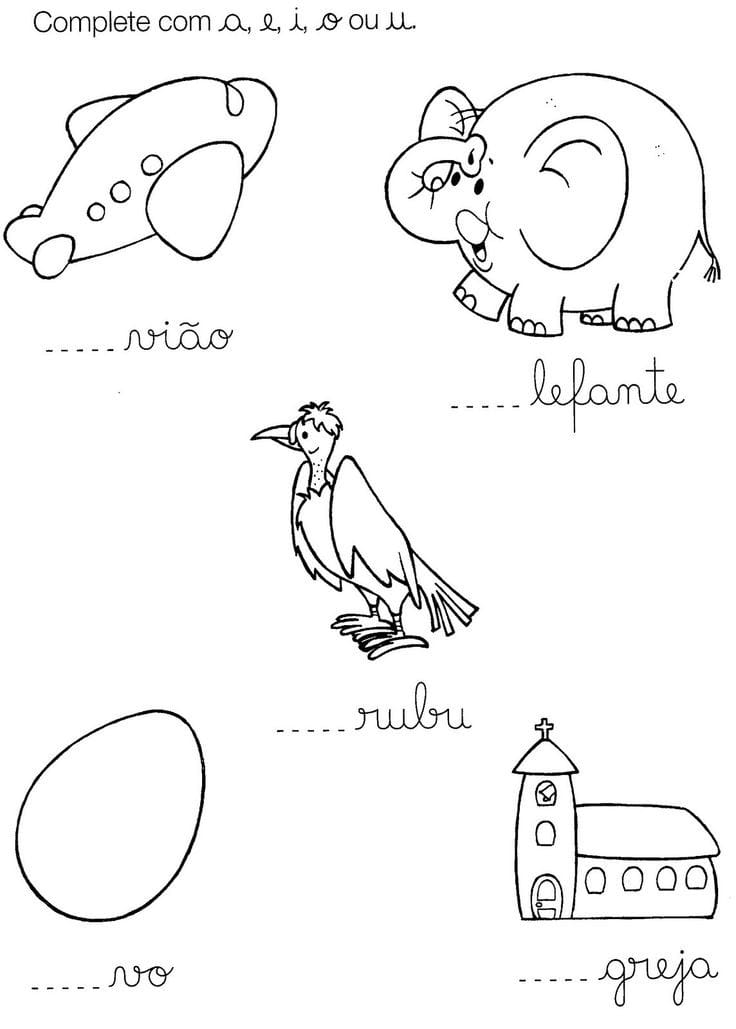 Complete com a, e, i, o ou u.
-----vião
-----lefante
-----rubu
-----vo
-----greja